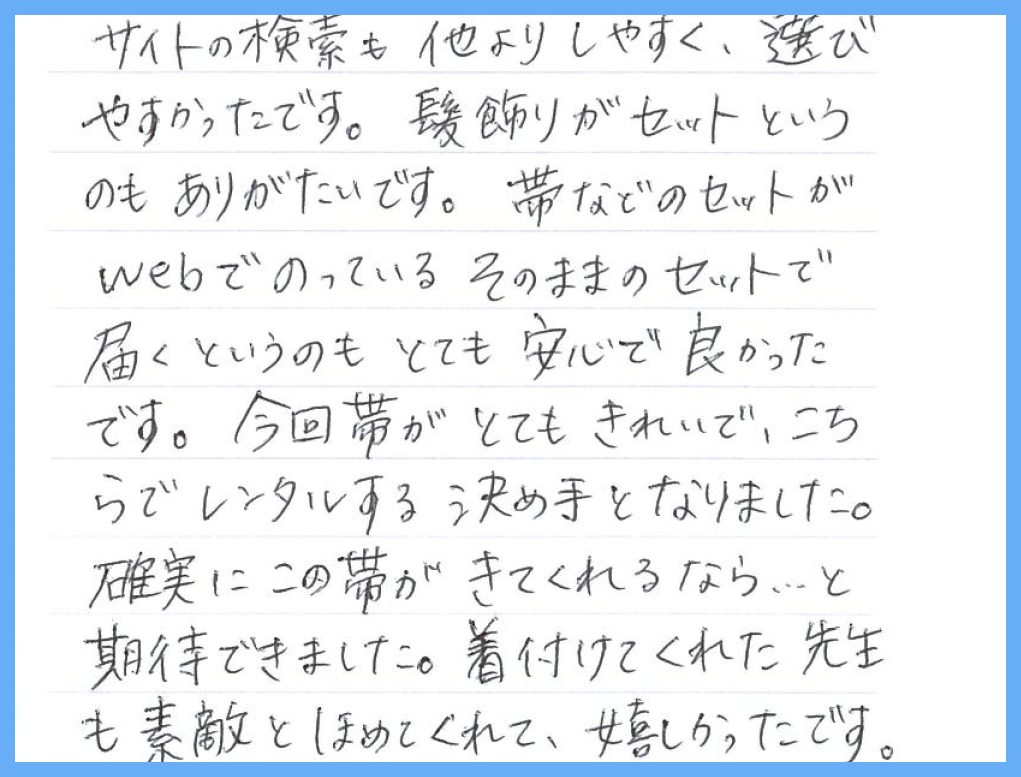 サイトの検索も他よりしやすく、選び
やすかったです。髪飾りがセットという
のもありがたいです。帯などのセットが
webでのっているそのままのセットで
届くというのもとても安心で良かった
です。今回帯がとてもきれいで、こち
らでレンタルする決め手となりました。
確実にこの帯がきてくれるなら…と
期待できました。着付けてくれた先生
も素敵とほめてくれて、嬉しかったです。